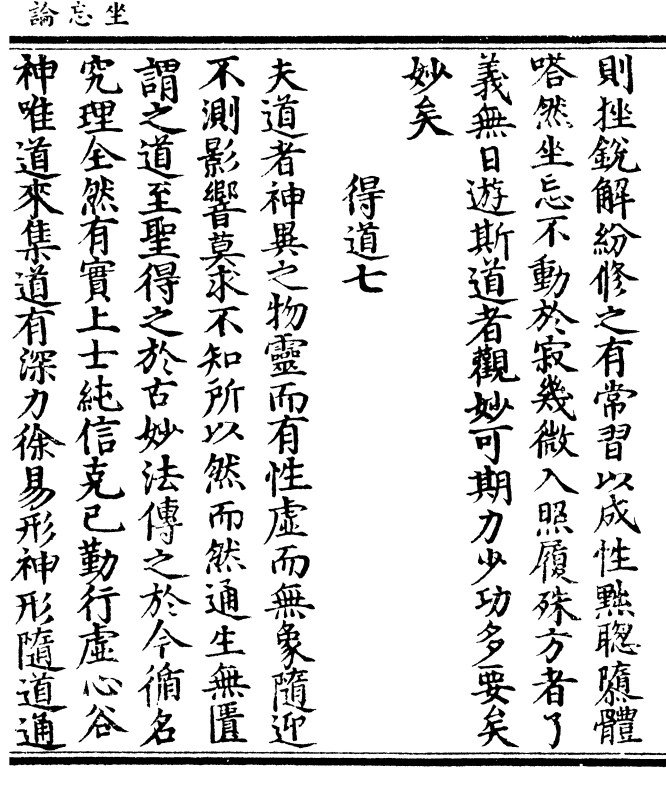 坐忘論
則挫銳解紛修之有常習以成性黜聦隳體
嗒然坐忘不動於寂幾微入照履殊方者了
義無日遊斯道者觀妙可期力少功多要矣
妙矣
得道七
夫道者神異之物靈而有性虛而無象隨迎
不測影響莫求不知所以然而然通生無匱
謂之道至聖得之於古妙法傳之於今循名
究理全然有實上士純信克己勤行虛心谷
神唯道來集道有深力徐易形神形隨道通